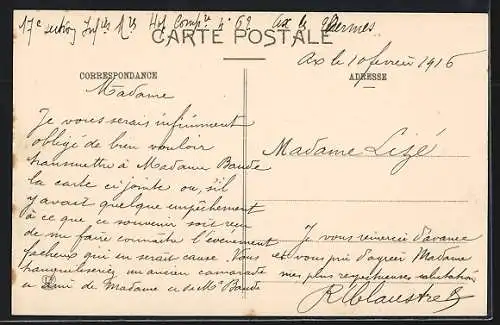 17e section Inf.rs M.res Hop Comp.re n° 62 Ax les Thermes
CARTE POSTALE
Ax le 10 février 1916
CORRESPONDANCE
ADRESSE
Madame
Je vous serais infiniment
obligé de bien vouloir
transmettre à Madame Baude
la carte ci jointe ou, s'il
y avait quelque empêchement
à ce que ce souvenir soit reçu
de me faire connaître l'évènement
fâcheux qui en serait cause. Vous
tranquiliseriez un ancien camarade
et ami de Madame et de Mr Baude
Madame Lizé
Je vous remercie d'avance
et vous prie d'agréer Madame
mes plus respectueuses salutations